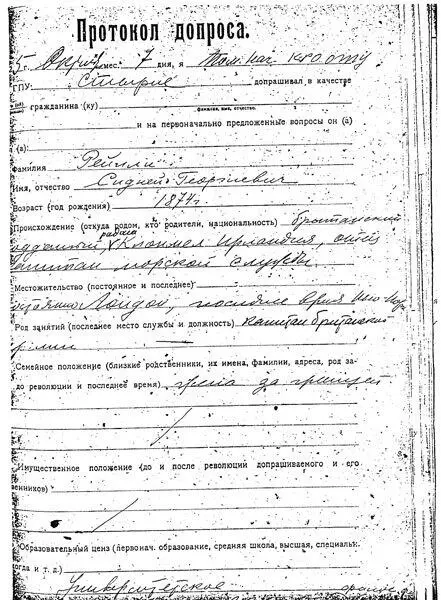 Протокол допроса.
5 г. Октяб. мес. 7 дня, я Пом. нач. КРО ОГПУ
ГПУ Стырне допрашивал в качестве
гражданина (ку)
фамилия, имя, отчество.
и на первоначально предложенные вопросы он (а)
(а):
Фамилия Рейлли
Имя, отчество Сидней Георгиевич
Возраст (год рождения) 1874 г
Происхождение (откуда родом, кто родители, национальность) британский
подданный, Клонмел Ирландия, отец
капитан морской службы
Местожительство (постоянное и последнее)
Лондон, последнее время Нью Йорк
Род занятий (последнее место службы и должность) капитан британской
армии
Семейное положение (близкие родственники, их имена, фамилии, адреса, род за-
до революции и последнее время) жена за границей
Имущественное положение (до и после революции допрашиваемого и его
венников)
Образовательный ценз (первонач. образование, средняя школа, высшая, специальн.
когда и т. д.)
Университетское